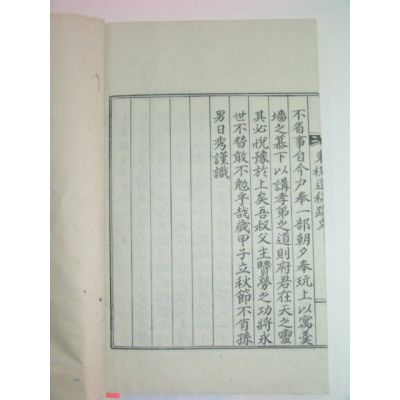 東樵遺稿跋文
不省事自今戶奉一部朝夕奉玩上以寓羹
墻之慕下以講孝弟之道則府君在天之靈
其必悅豫於上矣吾叔父主賷勞之功將永
世不替敢不勉乎哉歲甲子立秋節不肖孫
男日秀謹識